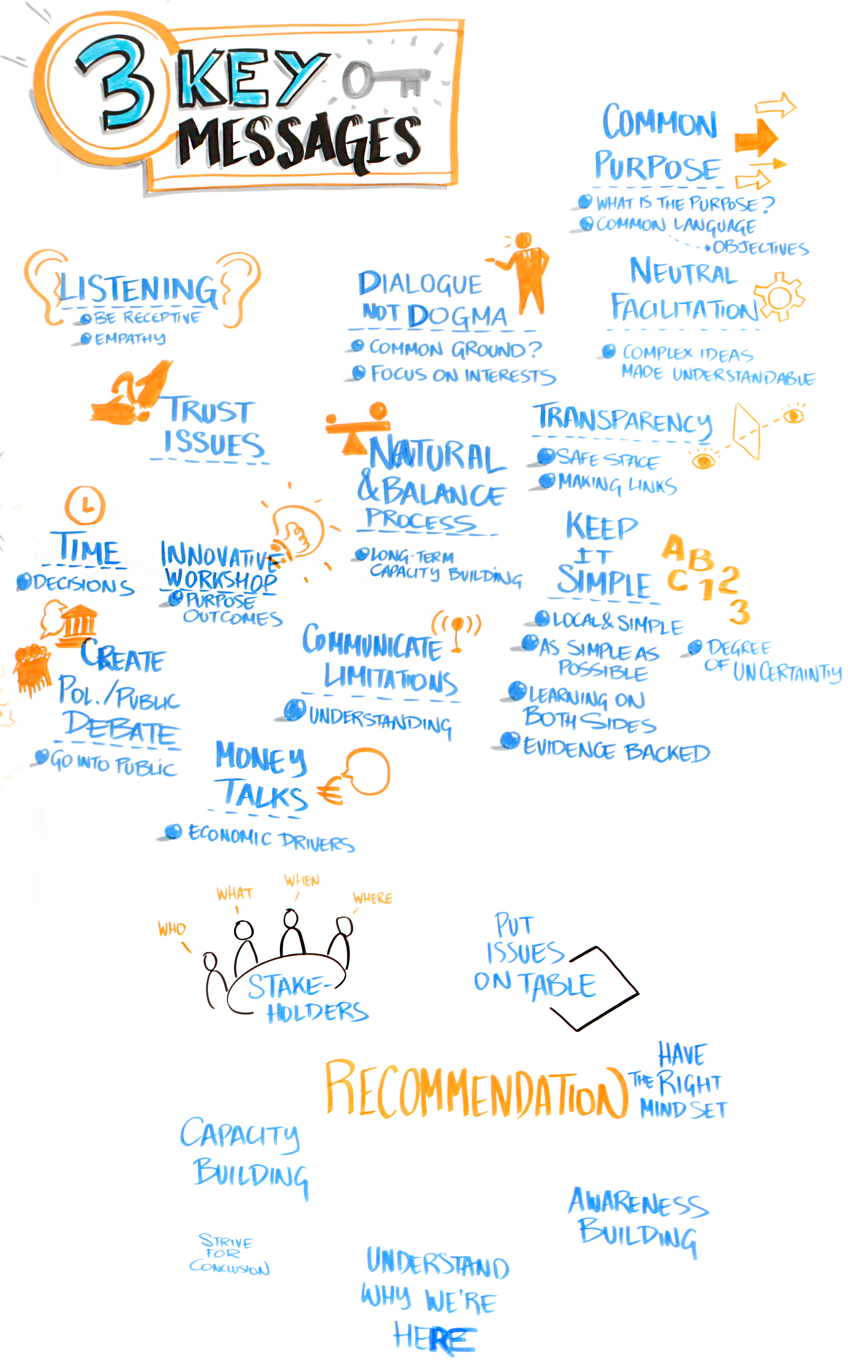 3 KEY
MESSAGES
COMMON
PURPOSE
WHAT IS THE PURPOSE?
COMMON LANGUAGE
OBJECTIVES
LISTENING
BE RECEPTIVE
EMPATHY
DIALOGUE
NOT DOGMA
COMMON GROUND?
FOCUS ON INTERESTS
NEUTRAL
FACILITATION
COMPLEX IDEAS
MADE UNDERSTANDABLE
?!
TRUST
ISSUES
NATURAL
& BALANCE
PROCESS
LONG-TERM
CAPACITY BUILDING
TRANSPARENCY
SAFE SPACE
MAKING LINKS
TIME
DECISIONS
INNOVATIVE
WORKSHOP
PURPOSE
OUTCOMES
KEEP
IT
SIMPLE
ABC123
LOCAL & SIMPLE
AS SIMPLE AS
POSSIBLE
LEARNING ON
BOTH SIDES
EVIDENCE BACKED
DEGREE
OF UNCERTAINTIY
CREATE
POL./PUBLIC
DEBATE
GO INTO PUBLIC
COMMUNICATE
LIMITATIONS
UNDERSTANDING
MONEY
TALKS
€
ECONOMIC DRIVERS
WHO
WHAT
WHEN
WHERE
STAKE-
HOLDERS
PUT
ISSUES
ON TABLE
RECOMMENDATION
HAVE
THE RIGHT
MIND SET
CAPACITY
BUILDING
AWARENESS
BUILDING
STRIVE
FOR
CONCLUSION
UNDERSTAND
WHY WE'RE
HERE